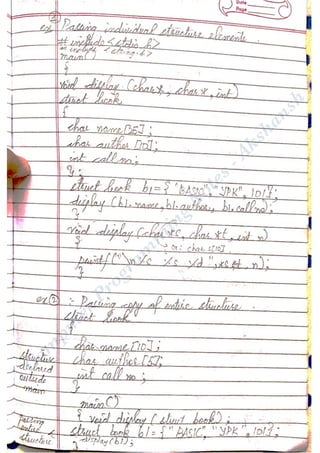 Date
Page
ex ① Passing individual structure elements.
# include <stdio.h>
# include <string.h>
main()
{
void display (char *, char *, int)
struct book
{
char name[35];
char author [10];
int call no;
};
struct book b1 = { "BASIC", "YPK", 101};
display (b1.name, b1.author, b1.call no);
}
void display (char *s, char *t, int n)
{
printf ("\n %s %s %d", s, t, n);
}
ex ② :- Passing copy of entire structure.
struct book
{
char name [10];
structure declared outside main
char author [5];
int call no;
}
main()
{ void display ( struct book);
passing entire structure
struct book b1 = { "BASIC", "YPK", 101};
display(b1);
}
Akshansh